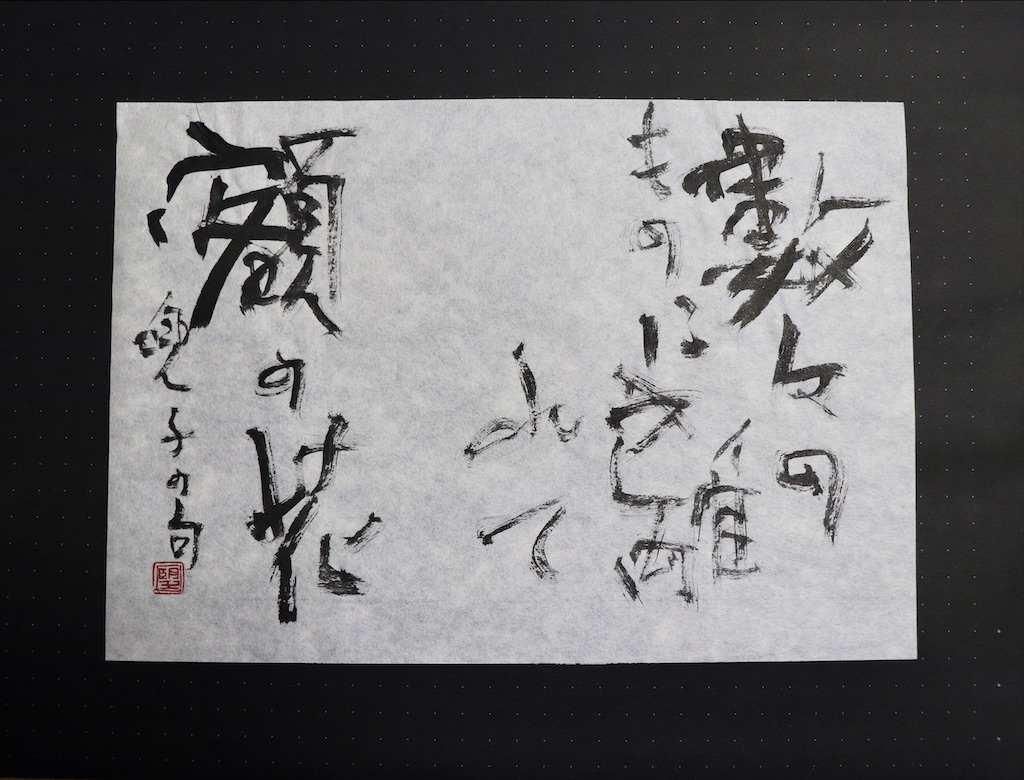 數々の
ものに離
れて
額の花
兜子の句